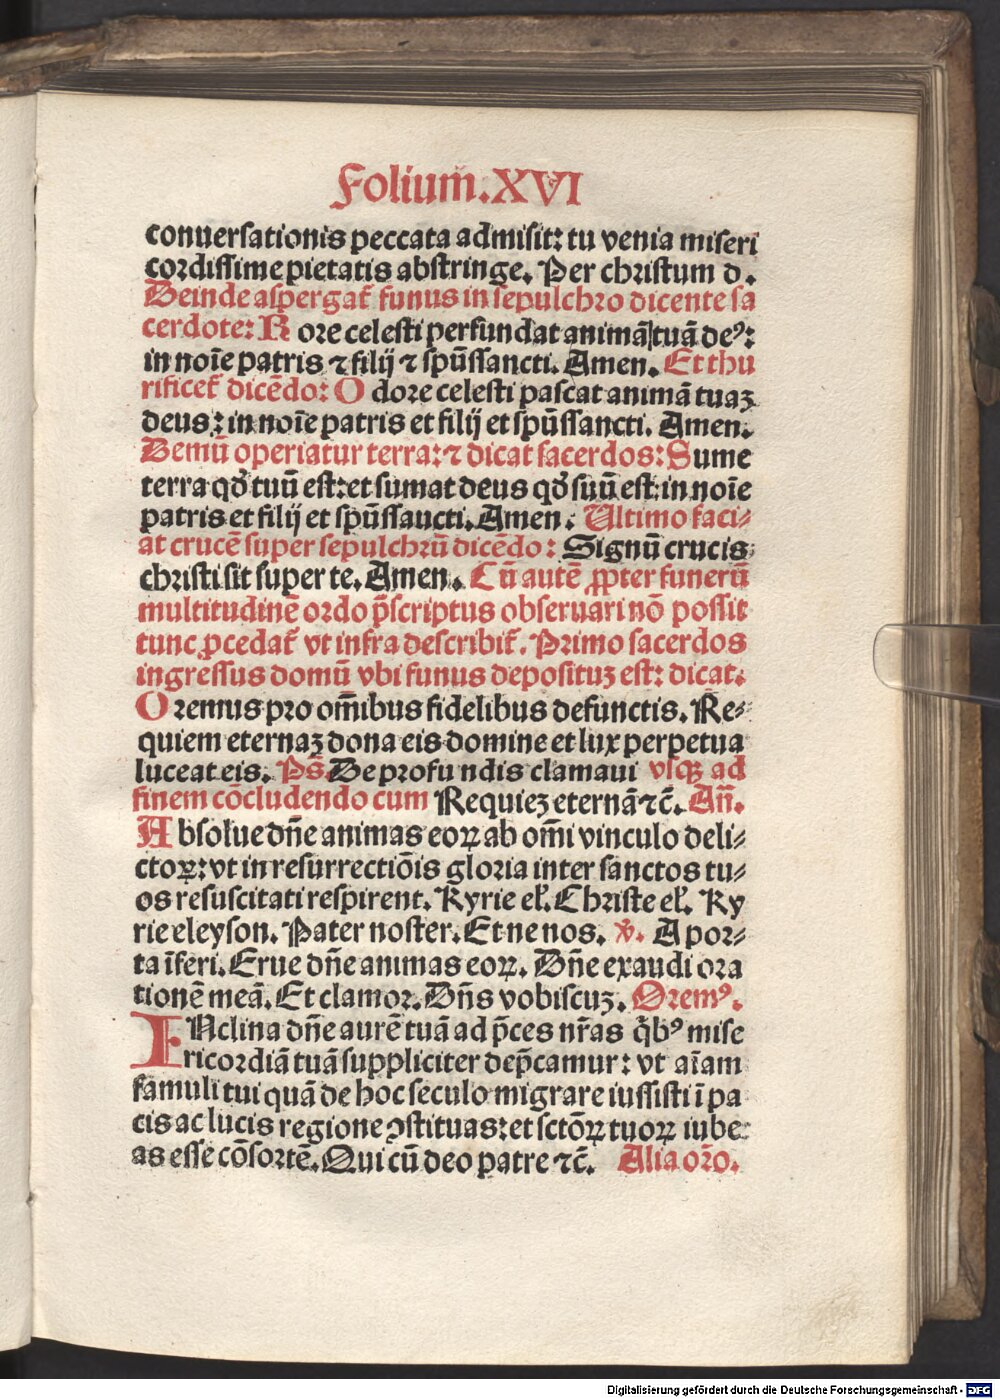 Folium̄.XVI
conuersationis peccata admisit: tu venia miseri
cordissime pietatis abstringe. Per christum d.
Deinde aspergat᷑ funus in sepulchro dicente sa
cerdote: R ore celesti perfundat animā tuā deꝰ:
in noīe patris ⁊ filij ⁊ spūssancti. Amen. Et thu
rificet᷑ dicēdo: O dore celesti pascat animā tuaꝫ
deus: in noīe patris et filij et spūssancti. Amen.
Demū operiatur terra: ⁊ dicat sacerdos: Sume
terra qđ tuū est: et sumat deus qđ suū est: in noīe
patris et filij et spūssaucti. Amen. Ultimo faci⸗
at crucē super sepulchrū dicēdo: Signū crucis
christi sit super te. Amen. Cū autē ꝓpter funerū
multitudinē ordo p̄scriptus obseruari nō possit
tunc ꝓcedat᷑ vt infra describit᷑. Primo sacerdos
ingressus domū vbi funus deposituꝫ est: dicat.
Oremus pro om̄ibus fidelibus defunctis. Re⸗
quiem eternaꝫ dona eis domine et lux perpetua
luceat eis. Ps̄. De profundis clamaui vsqꝫ ad
finem cōcludendo cum Requieꝫ eternā ⁊c̄. Añ.
Absolue dn̄e animas eoꝝ ab om̄i vinculo deli⸗
ctoꝝ: vt in resurrectiōis gloria inter sanctos tu⸗
os resuscitati respirent. Kyrie el̓. Christe el̓. Ky
rie eleyson. Pater noster. Et ne nos. ℣. A por⸗
ta īferi. Erue dn̄e animas eoꝝ. Dn̄e exaudi ora
tionē meā. Et clamor. Dn̄s vobiscuꝫ. Oremꝰ.
INclina dn̄e aurē tuā ad p̄ces nr̄as q̄bꝰ mise
ricordiā tuā suppliciter dep̄camur: vt aīam
famuli tui quā de hoc seculo migrare iussisti ī pa
cis ac lucis regione ꝯstituas: et sctōꝝ tuoꝝ iube
as esse cōsortē. Qui cū deo patre ⁊c̄. Alia or̄o.
Digitalisierung gefördert durch die Deutsche Forschungsgemeinschaft - DFG